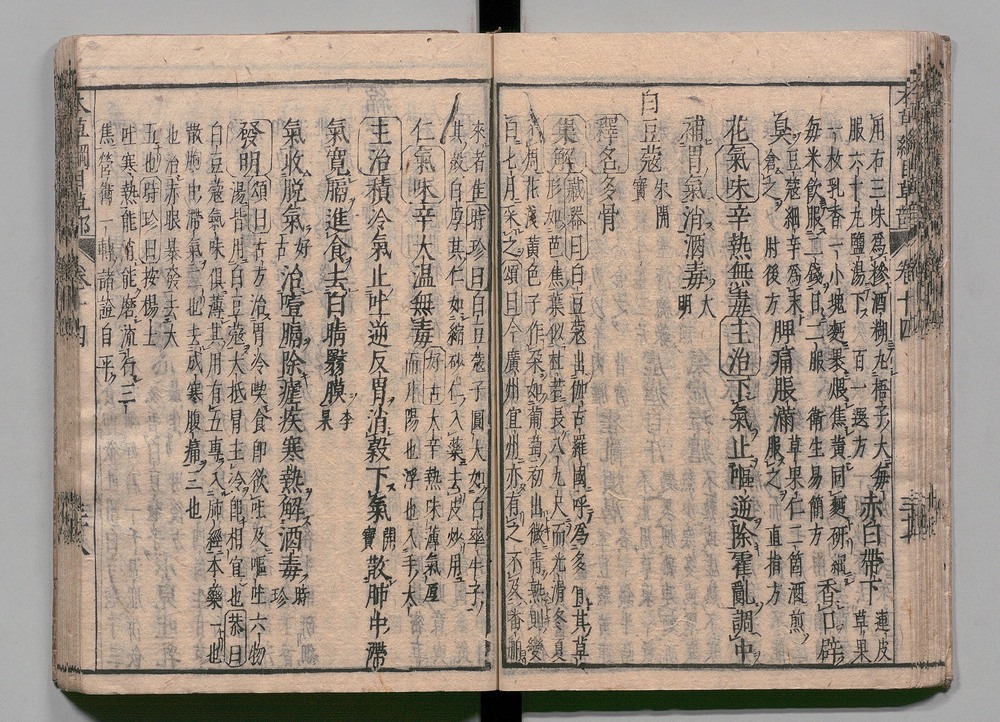 本草綱目草部 卷十四
用右三味爲糝酒糊丸梧子大每
服六七十九鹽湯下 百一選方 赤白帶下 連皮草果
一枚乳香一小塊麪裹煨焦黃同麪研細
每米飲服二錢日二服 衞生易簡方 香口辟
臭 豆蔲細辛爲末含之 肘後方 脾痛脹滿 草果仁二箇酒煎服之 直指方
花 氣味辛熱無毒 主治下氣止嘔逆除霍亂調中
補胃氣消酒毒 大明
白豆蔲 宋開寶
釋名多骨
集解 藏器曰白豆蔲出伽古羅國呼爲多骨其草
形如芭蕉葉似杜若長八九尺而光滑冬夏
不凋花淺黃色子作朵如葡萄初出微青熟則變
白七月采之頌曰今廣州宜州亦有之不及番舶
來者佳時珍曰白豆蔲子圓大如白牽牛子
其殼白厚其仁如縮砂仁入藥去皮炒用
仁 氣味辛大溫無毒 好古曰大辛熱味薄氣厚輕清而升陽也浮也入手太
主治積冷氣止吐逆反胃消穀下氣 開寶 散肺中滯
氣寬膈進食去白睛翳膜 李杲
氣收脫氣 好古 治噎膈除瘧疾寒熱解酒毒 時珍
發明 頌曰古方治胃冷喫食即欲吐及嘔吐六物
湯皆用白豆蔲大抵胃主冷即相宜也 恭曰
白豆蔲氣味俱薄其用有五專入肺經本藥一也
散胸中滯氣二也去感寒腹痛三也
也治赤眼暴發去太
五也時珍曰按楊士
吐寒熱能消能磨流行三
焦營衞一轉諸證自平
本草綱目草部 卷十四